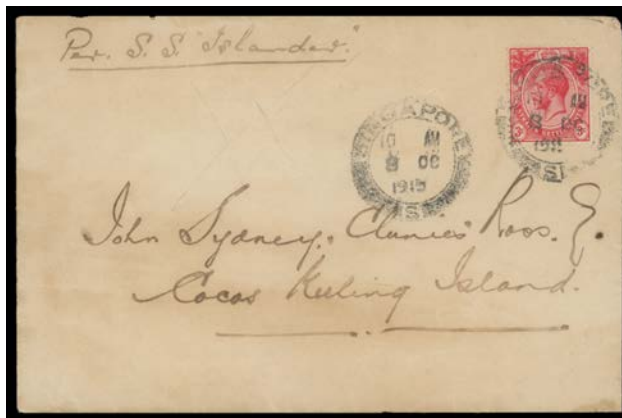 Per. S. S. "Islander".
SINGAPORE
10 AM
8 OC
1915
S
AM
8 OC
191
S
John Sydney. Clunies Ross. E.
Cocos Keeling Island.